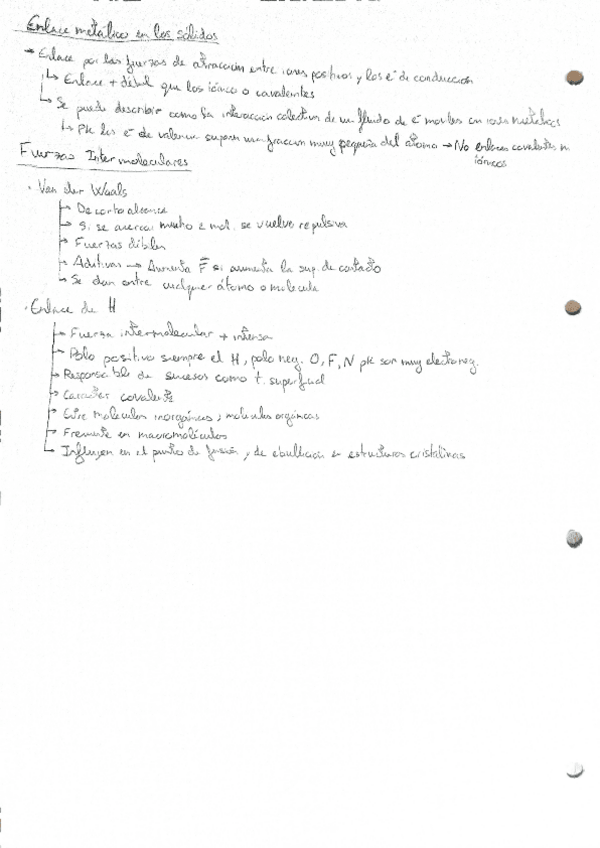 Enlace metálico en los sólidos
→ Enlace por las fuerzas de atracción entre iones positivos y los e⁻ de conducción
↳ Enlace + débil que los iónico o covalentes
↳ Se puede describir como la interacción colectiva de un fluido de e⁻ moviles con iones metálicos
↳ Pk los e⁻ de valencia suponen una fracción muy pequeña del átomo → No enlaces covalentes ni
iónicos
Fuerzas Intermoleculares
· Van der Waals
→ De corto alcance
→ Si se acercan mucho 2 mol. se vuelve repulsiva
→ Fuerzas débiles
→ Aditivas → Aumenta F si aumenta la sup. de contacto
→ Se dan entre cualquier átomo o molécula
· Enlace de H
→ Fuerza intermolecular + intensa
→ Polo positivo siempre el H, polo neg. O, F, N pk son muy electroneg.
→ Responsable de sucesos como t. superficial
→ Carácter covalente
→ Entre moléculas inorgánicas y moléculas orgánicas
→ Frecuente en macromoléculas
→ Influyen en el punto de fusión y de ebullición en estructuras cristalinas